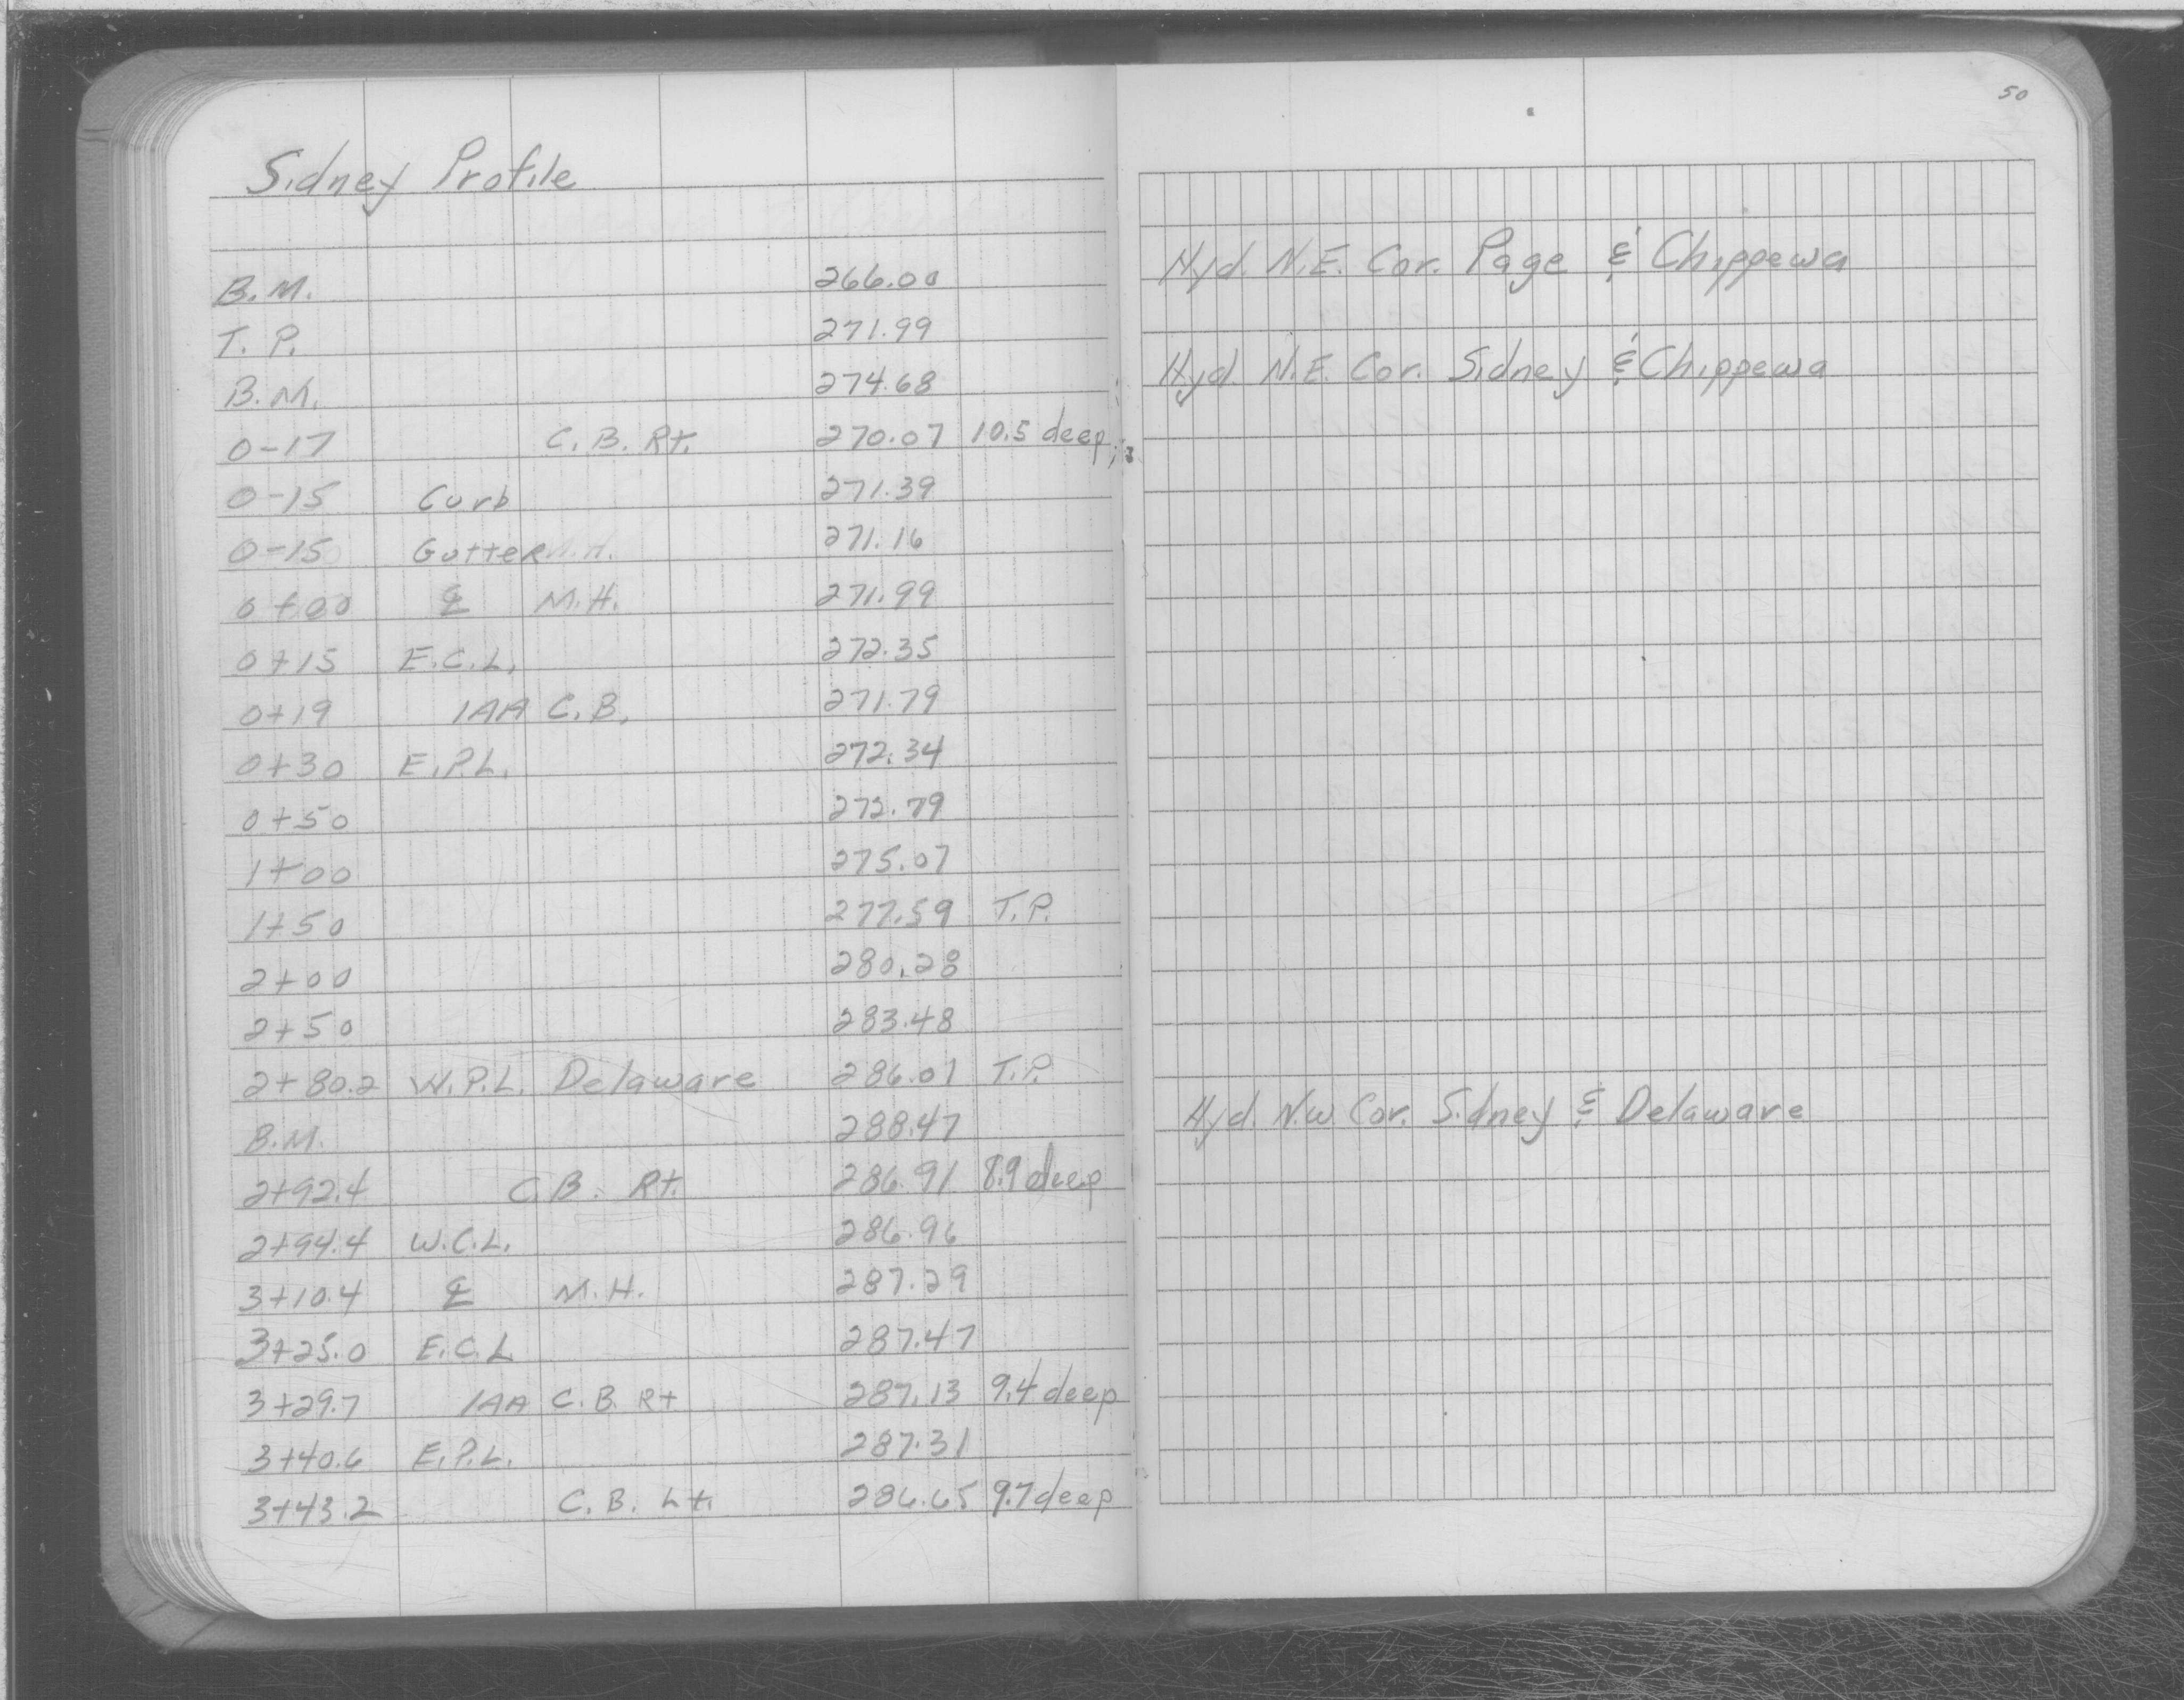 50
Sidney Profile
B.M. 266.00 Hyd. N.E. Cor. Page & Chippewa
T.P. 271.99
B.M. 274.68 Hyd. N.E. Cor. Sidney & Chippewa
0-17 C.B. Rt. 270.07 10.5 deep
0-15 Curb 271.39
0-15 Gutter 271.16
0+00 ℄ M.H. 271.99
0+15 E.C.L. 272.35
0+19 1AA C.B. 271.79
0+30 E.P.L. 272.34
0+50 272.79
1+00 275.07
1+50 277.59 T.P.
2+00 280.28
2+50 283.48
2+80.2 W.P.L. Delaware 286.01 T.P.
B.M. 288.47 Hyd. N.W. Cor. Sidney & Delaware
2+92.4 C.B. Rt. 286.91 8.9 deep
2+94.4 W.C.L. 286.96
3+10.4 ℄ M.H. 287.29
3+25.0 E.C.L 287.47
3+29.7 1AA C.B. Rt 287.13 9.4 deep
3+40.6 E.P.L. 287.31
3+43.2 C.B. Lt. 286.65 9.7 deep